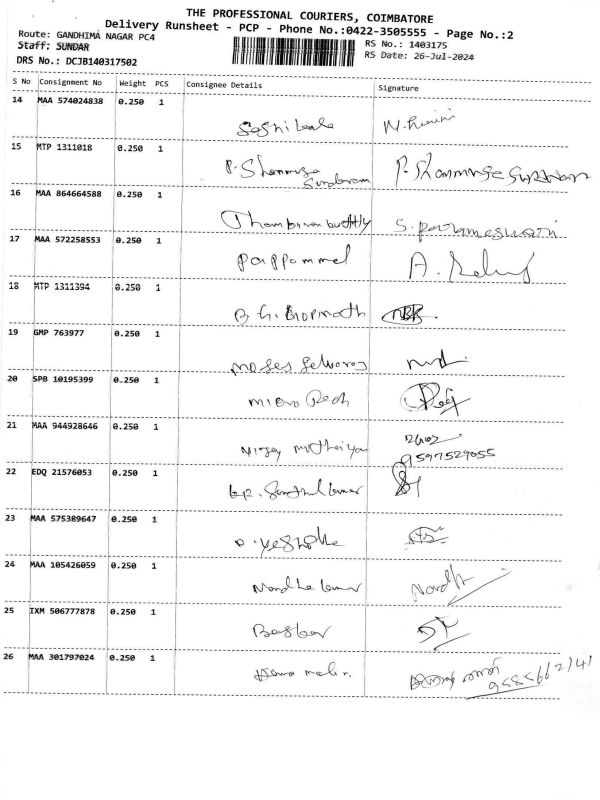 THE PROFESSIONAL COURIERS, COIMBATORE
Delivery Runsheet - PCP - Phone No.:0422-3505555 - Page No.:2
Route: GANDHIMA NAGAR PC4
RS No.: 1403175
Staff: SUNDAR
RS Date: 26-Jul-2024
DRS No.: DCJB140317502
S No Consignment No Weight PCS Consignee Details Signature
14 MAA 574024838 0.250 1
15 MTP 1311018 0.250 1
P. Shanmuga Sundaram P. Shanmuga Sundaram
16 MAA 864664588 0.250 1
S. Parameswari
17 MAA 572258553 0.250 1
Pappammal A.
18 MTP 1311394 0.250 1
B. G. Gopinath
19 GMP 763977 0.250 1
Moses Selvaraj
20 SPB 10195399 0.250 1
Micro Tech
21 MAA 944928646 0.250 1
Vijay Muthaiyan 9597529055
22 EDQ 21576053 0.250 1
23 MAA 575389647 0.250 1
24 MAA 105426059 0.250 1
Nandha Kumar Nandh
25 IXM 506777878 0.250 1
Baskar
26 MAA 301797024 0.250 1